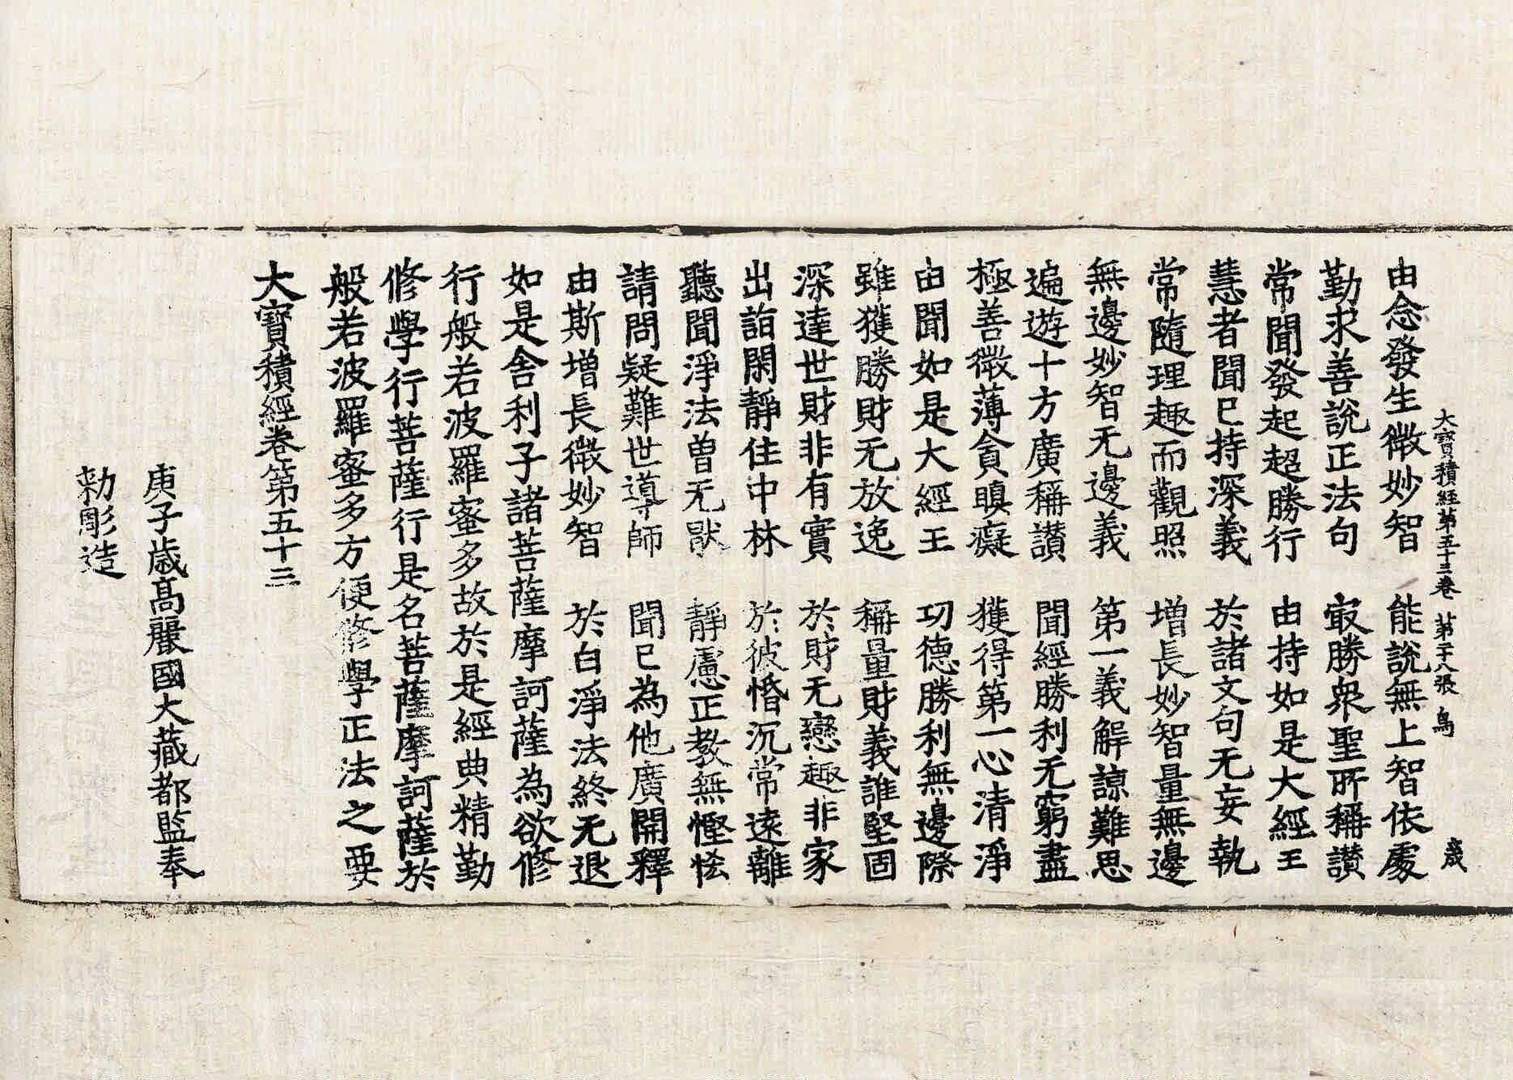 大寶積經第五十三卷 第二十八張 鳥 歲
由念發生微妙智 能說無上智依處
勤求善說正法句 㝡勝衆聖所稱讃
常聞發起超勝行 由持如是大經王
慧者聞已持深義 於諸文句无妄執
常隨理趣而觀照 增長妙智量無邊
無邊妙智无邊義 第一義解諒難思
遍遊十方廣稱讃 聞經勝利无窮盡
極善微薄貪瞋癡 獲得第一心清淨
由聞如是大經王 㓛德勝利無邊際
雖獲勝財无放逸 稱量財義誰堅固
深達世財非有實 於財无戀趣非家
出詣閑靜住中林 於彼惛沉常遠離
聽聞淨法曾无猒 靜慮正教無慳悋
請問疑難世導師 聞已為他廣開釋
由斯增長微妙智 於白淨法終无退
如是舍利子諸菩薩摩訶薩為欲修
行般若波羅蜜多故於是經典精勤
修學行菩薩行是名菩薩摩訶薩於
般若波羅蜜多方便修學正法之要
大寶積經卷第五十三
庚子歲高麗國大藏都監奉
勅彫造